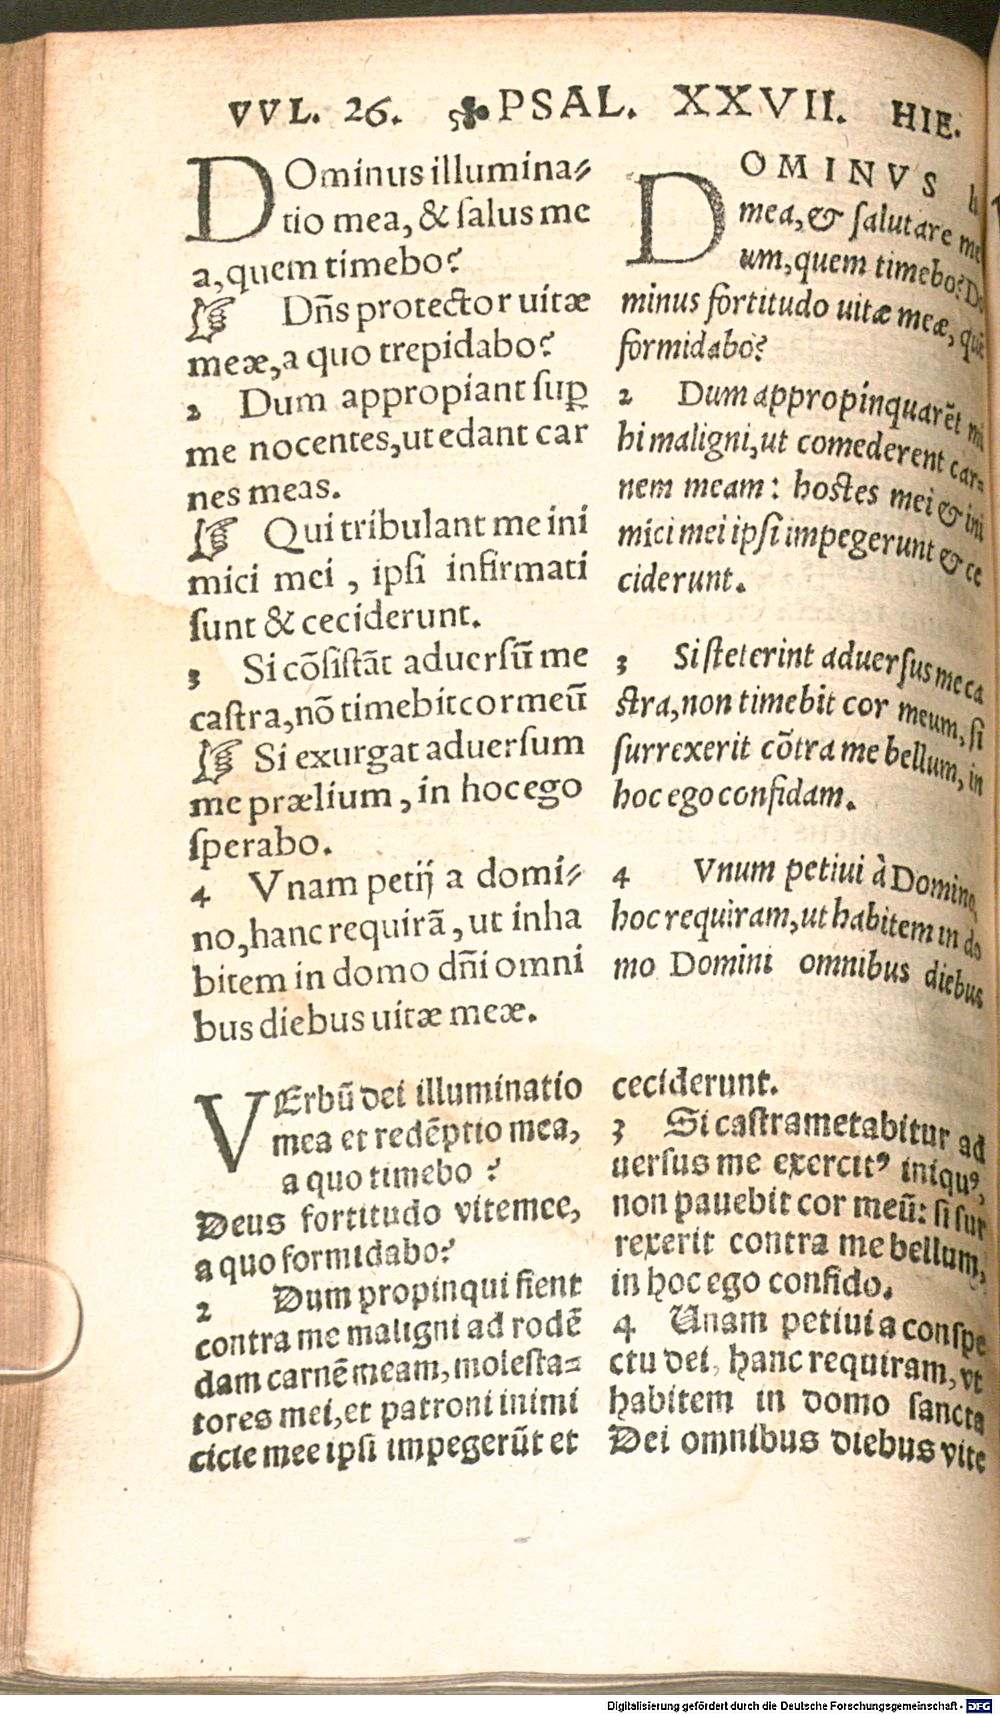 VVL. 26. PSAL. XXVII. HIE.
DOminus illumina⸗
tio mea, & ſalus me
a, quem timebo?
☞ Dñs protector uitæ
meæ, a quo trepidabo?
2 Dum appropiant ſuꝑ
me nocentes, ut edant car
nes meas.
☞ Qui tribulant me ini
mici mei, ipſi infirmati
ſunt & ceciderunt.
3 Si cõſiſtãt aduerſũ me
caſtra, nõ timebit cor meũ
☞ Si exurgat aduerſum
me prælium, in hoc ego
ſperabo.
4 Vnam petij a domi⸗
no, hanc requirã, ut inha
bitem in domo dñi omni
bus diebus uitæ meæ.
DOMINVS
mea, & ſalutare me
um, quem timebo? Do
minus fortitudo uitæ meæ, quẽ
formidabo?
2 Dum appropinquarẽt mi
hi maligni, ut comederent car⸗
nem meam: hoſtes mei & ini
mici mei ipſi impegerunt & ce
ciderunt.
3 Si ſteterint aduerſus me ca
ſtra, non timebit cor meum, ſi
ſurrexerit cõtra me bellum, in
hoc ego confidam.
4 Vnum petiui à Domino,
hoc requiram, ut habitem in do
mo Domini omnibus diebus
VErbũ dei illuminatio
mea et redẽptio mea,
a quo timebo?
Deus fortitudo vite mee,
a quo formidabo?
2 Dum propinqui fient
contra me maligni ad rodẽ
dam carnẽ meam, moleſta⸗
tores mei, et patroni inimi
cicie mee ipſi impegerũt et
ceciderunt.
3 Si caſtrametabitur ad
uerſus me exercitꝰ iniquꝰ,
non pauebit cor meũ: ſi ſur
rexerit contra me bellum,
in hoc ego confido.
4 Unam petiui a conſpe
ctu dei, hanc requiram, vt
habitem in domo ſancta
Dei omnibus diebus vite
Digitalisierung gefördert durch die Deutsche Forschungsgemeinschaft - DFG